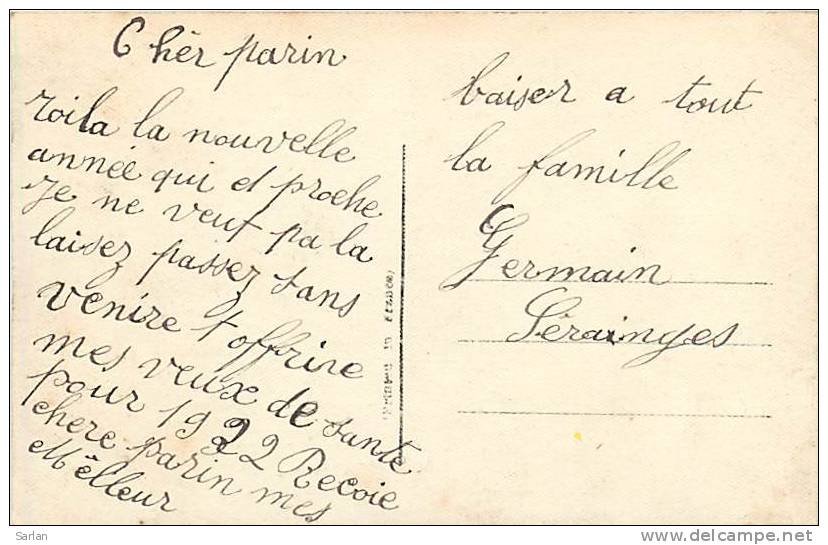 Chèr parin
voila la nouvelle
année qui et proche
Je ne veut pa la
laisez passez sans
venire t offrire
mes veux de sante
pour 1922 Recoie
chere parin mes
Mêlleur
baiser a tout
la famille
Germain
Sérainges
Sarlan
www.delcampe.net